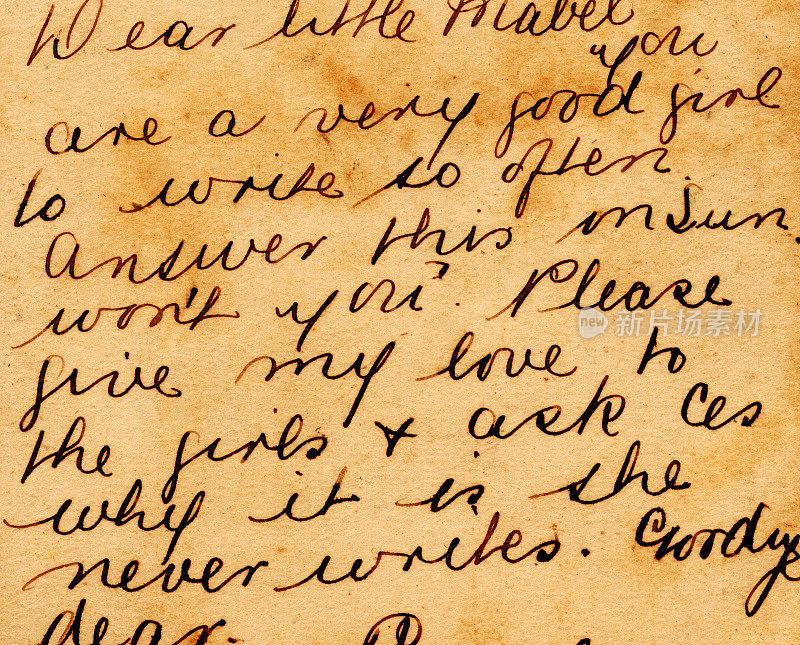 Dear little Mabel
you
are a very good girl
to write so often.
Answer this on Sun.
won't you. Please
give my love to
the girls & ask Ces
why it is she
never writes. Goodbye
dear.
new 新片场素材